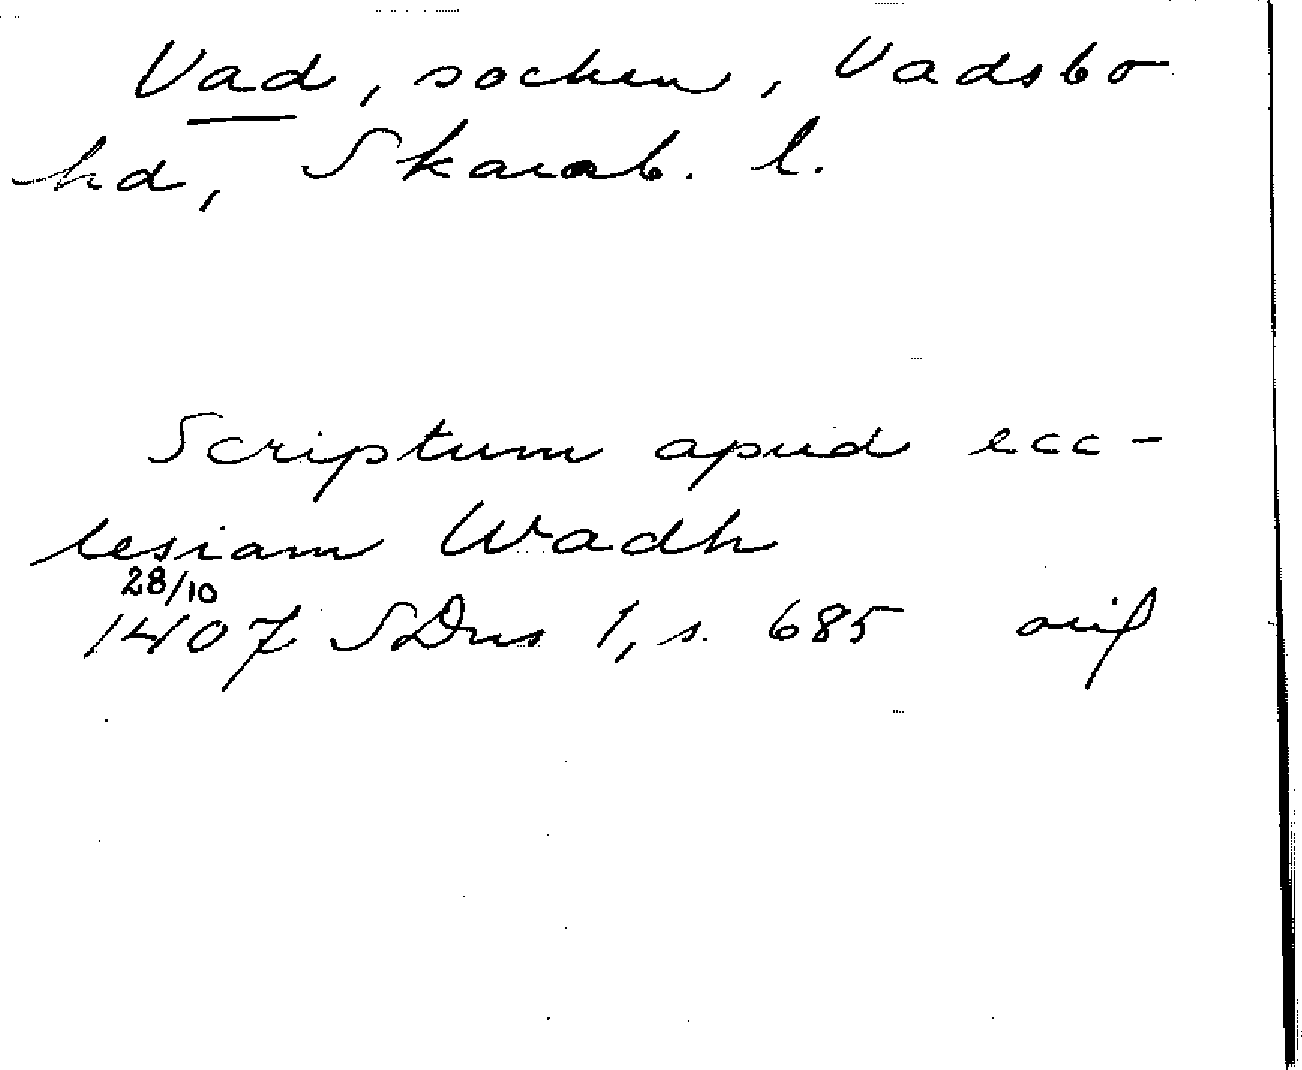 Vad, socken, Vadsbo
hd, Skarab. l.
Scriptum apud ecc-
lesiam Wadh
28/10
1407 SDns 1, s. 685 orig